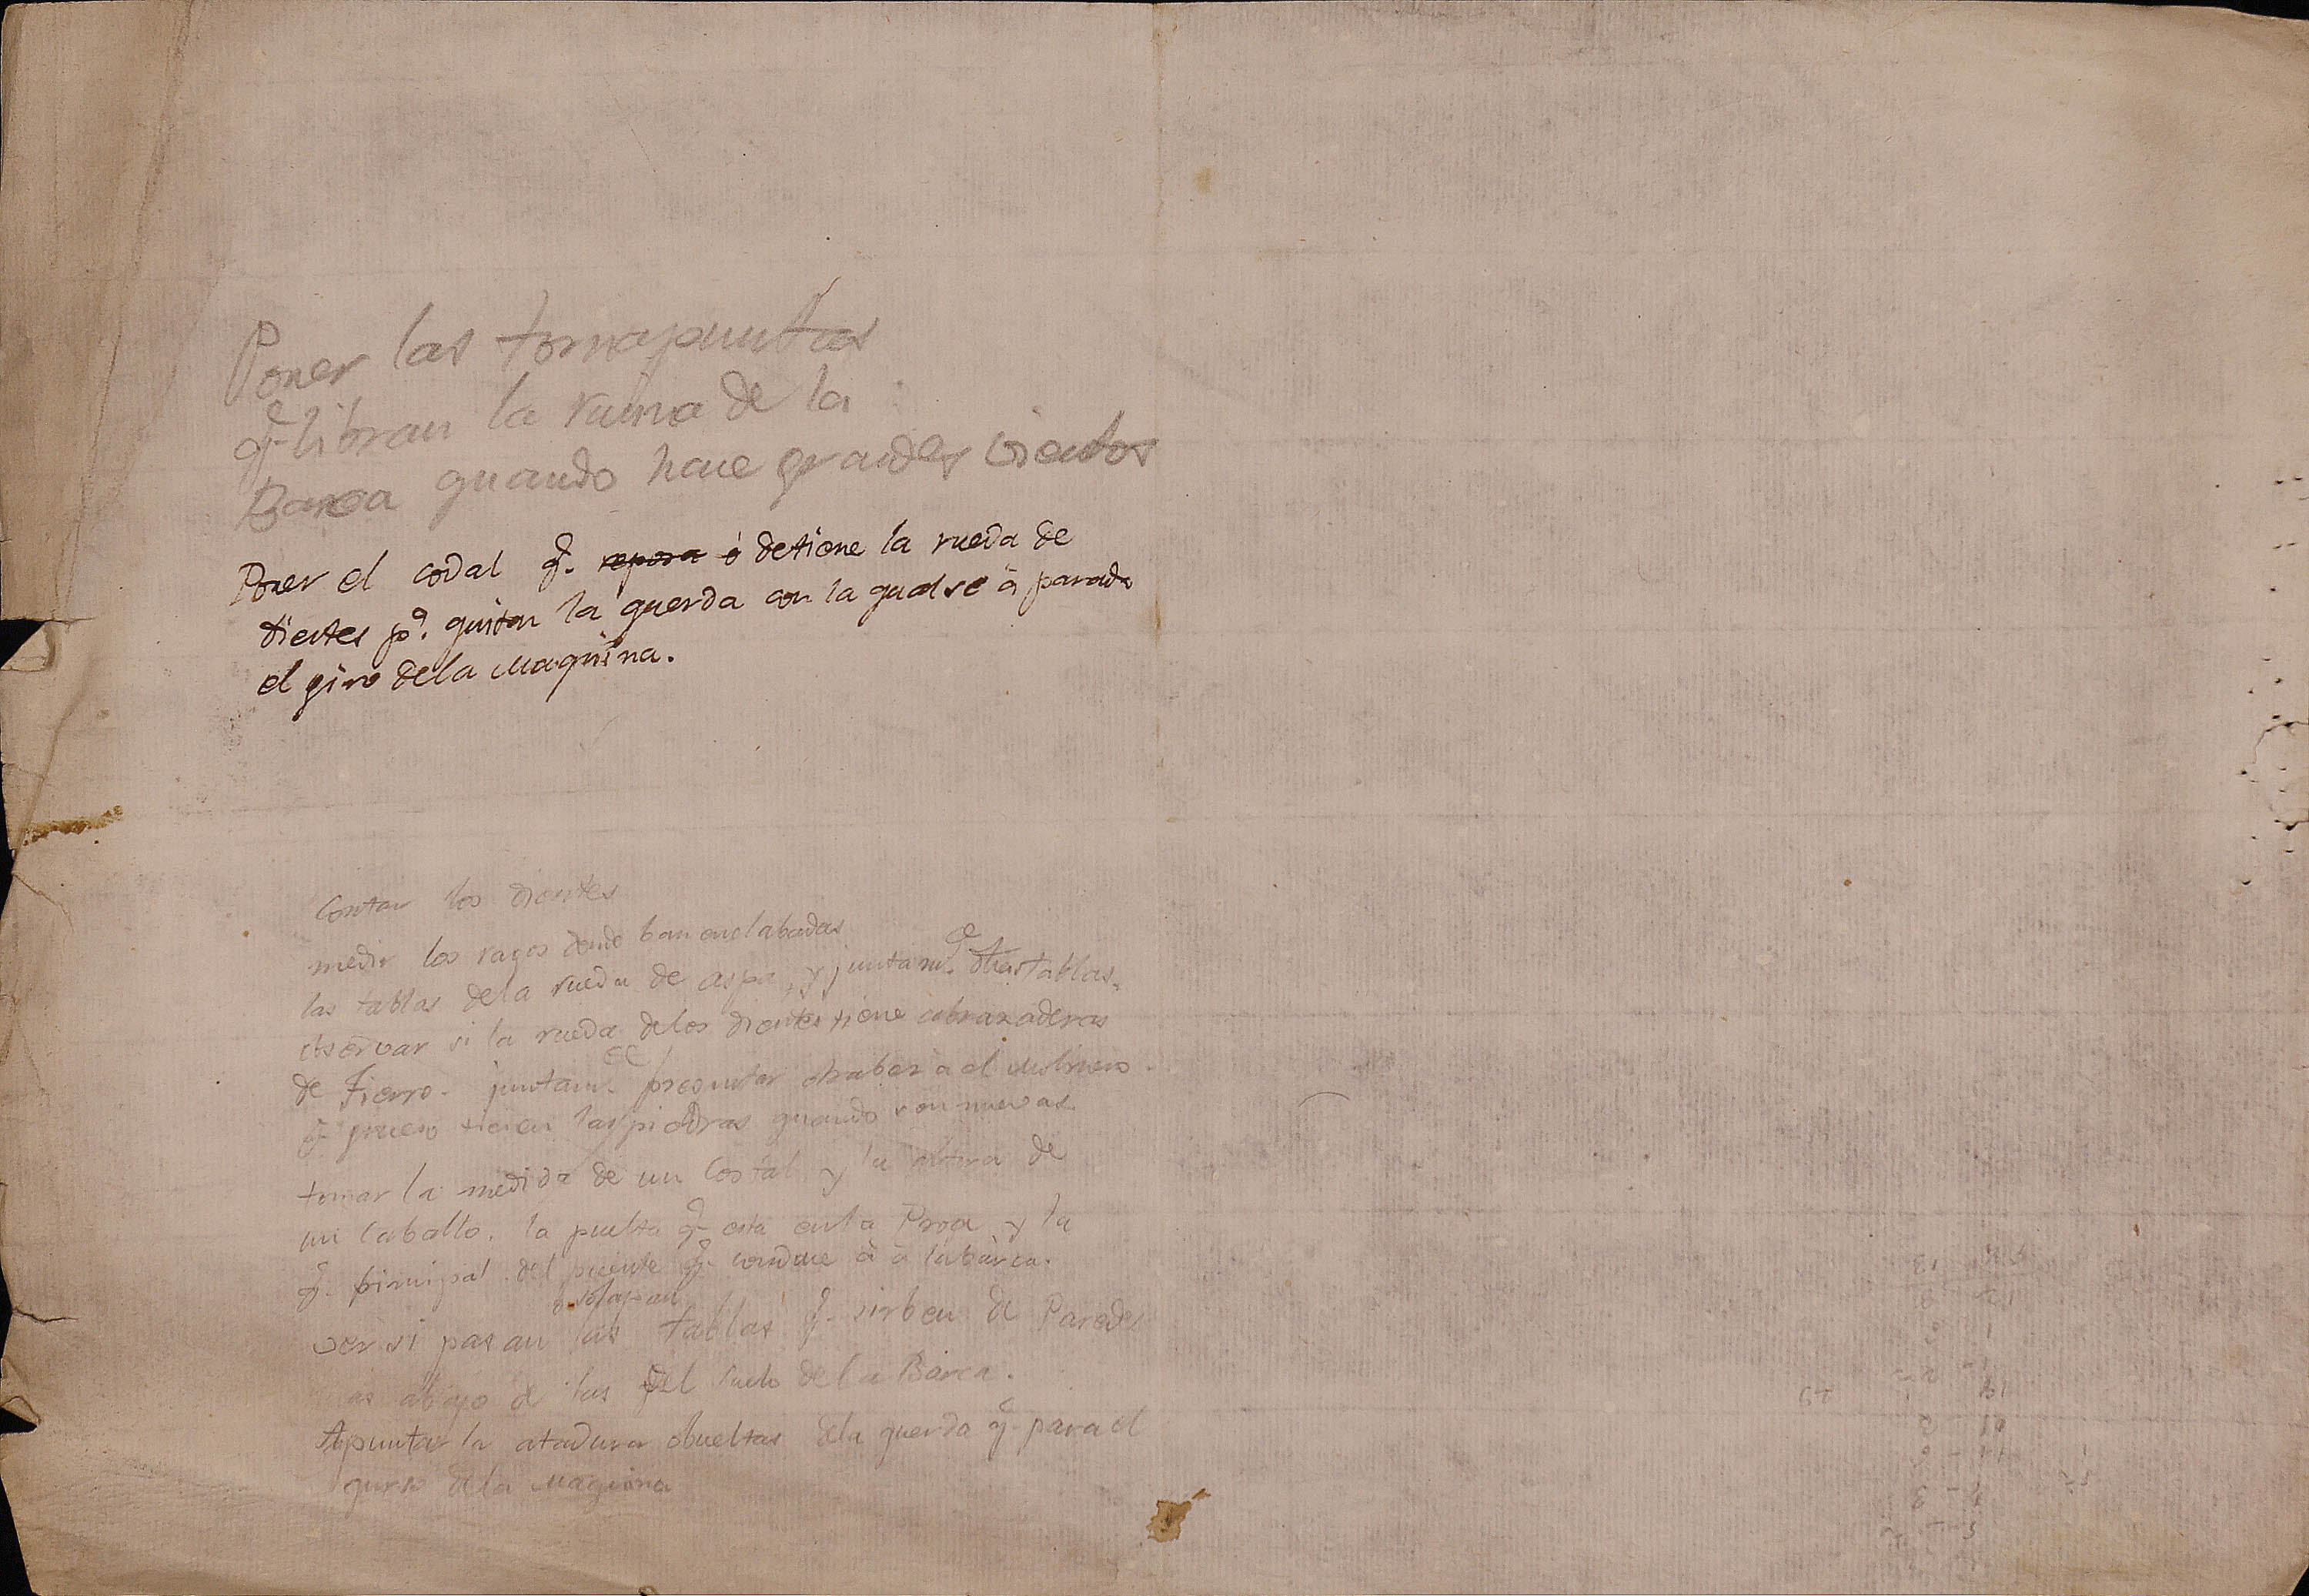 Poner las tornapuntas
q.e libran la ruina de la
Barca quando hace grandes vientos
Poner el codal q.e repara ó detiene la rueda de
dientes p.a quitar la querda con la qual se à parado
el giro dela Maquina.
Contar los dientes
medir los rayos donde ban enclabadas
las tablas dela rueda de aspa, y juntam.te otras tablas.
observar si la rueda delos dientes tiene abrazaderas
de Fierro. juntam.te preguntar à el Molinero.
q.e grueso tienen las piedras quando son nuevas.
tomar la medida de un Costal y la altura de
un Caballo. la puerta q.e está en la Proa y la
q.e principal del puente q.e conduce à à la barca.
o solapan
ver si pasan las tablas q.e sirben de Paredes
mas abajo de las del suelo dela Barca.
Apuntar la atadura o bueltas dela querda q.e para el
curso dela Maquina